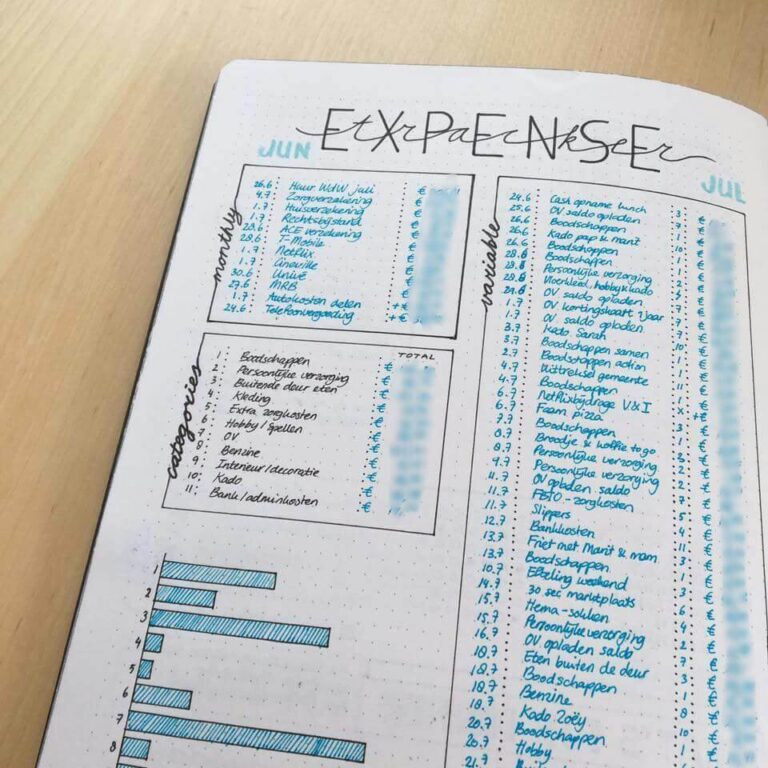 EXPENSE
tracker
JUN
JUL
monthly
26.6 : Huur WdW juli : €
4.7 : Zorgverzekering : €
1.7 : Huisverzekering : €
1.7 : Rechtsbijstand : €
28.6 : ACE verzekering : €
28.6 : T-Mobile : €
1.7 : Netflix : €
1.7 : Cineville : €
30.6 : Univé : €
27.6 : MRB : €
1.7 : Autokosten delen : +€
24.6 : Telefoonvergoeding : +€
categories
TOTAL
1 : Boodschappen : €
2 : Persoonlijke verzorging : €
3 : Buitende deur eten : €
4 : Kleding : €
5 : Extra zorgkosten : €
6 : Hobby/spellen : €
7 : OV : €
8 : Benzine : €
9 : Interieur/decoratie : €
10 : Kado : €
11 : Bank/adminkosten : €
1
2
3
4
5
6
7
8
variable
24.6 : Cash opname lunch : 3 : €
25.6 : OV saldo opladen : 7 : €
26.6 : Boodschappen : 1 : €
26.6 : Kado pap & marit : 10 : €
26.6 : Boodschappen : 1 : €
28.6 : Boodschappen : 1 : €
28.6 : Persoonlijke verzorging : 2 : €
: hobby & kado : €
OV saldo opladen : 7 : €
1.7 : OV kortingskaart 1 jaar : 7 : €
1.7 : OV saldo opladen : 7 : €
3.7 : Kado Sarah : 10 : €
3.7 : Boodschappen samen : 1 : €
2.7 : Boodschappen action : 1 : €
4.7 : Uittreksel gemeente : 11 : €
4.7 : Boodschappen : 1 : €
6.7 : Netflixbijdrage V & I : x : +€
6.7 : Foam pizza : 3 : €
7.7 : Boodschappen : 1 : €
8.7 : Broodje & koffie to go : 3 : €
9.7 : Persoonlijke verzorging : 2 : €
9.7 : Persoonlijke verzorging : 2 : €
11.7 : OV opladen saldo : 7 : €
11.7 : - zorgkosten : €
11.7 : Slippers : €
12.7 : Bankkosten : 11 : €
13.7 : Friet met Marit & mam : 3 : €
13.7 : Boodschappen : 1 : €
10.7 : Efteling weekend : 3 : €
14.7 : 30 sec marktplaats : 6 : €
15.7 : Hema - sokken : 4 : €
15.7 : Persoonlijke verzorging : 2 : €
16.7 : OV opladen saldo : 7 : €
18.7 : Eten buiten de deur : 3 : €
18.7 : Boodschappen : 1 : €
18.7 : Benzine : 8 : €
18.7 : Kado Zoëy : 10 : €
20.7 : Boodschappen : 1 : €
20.7 : Hobby : 6 : €
21.7